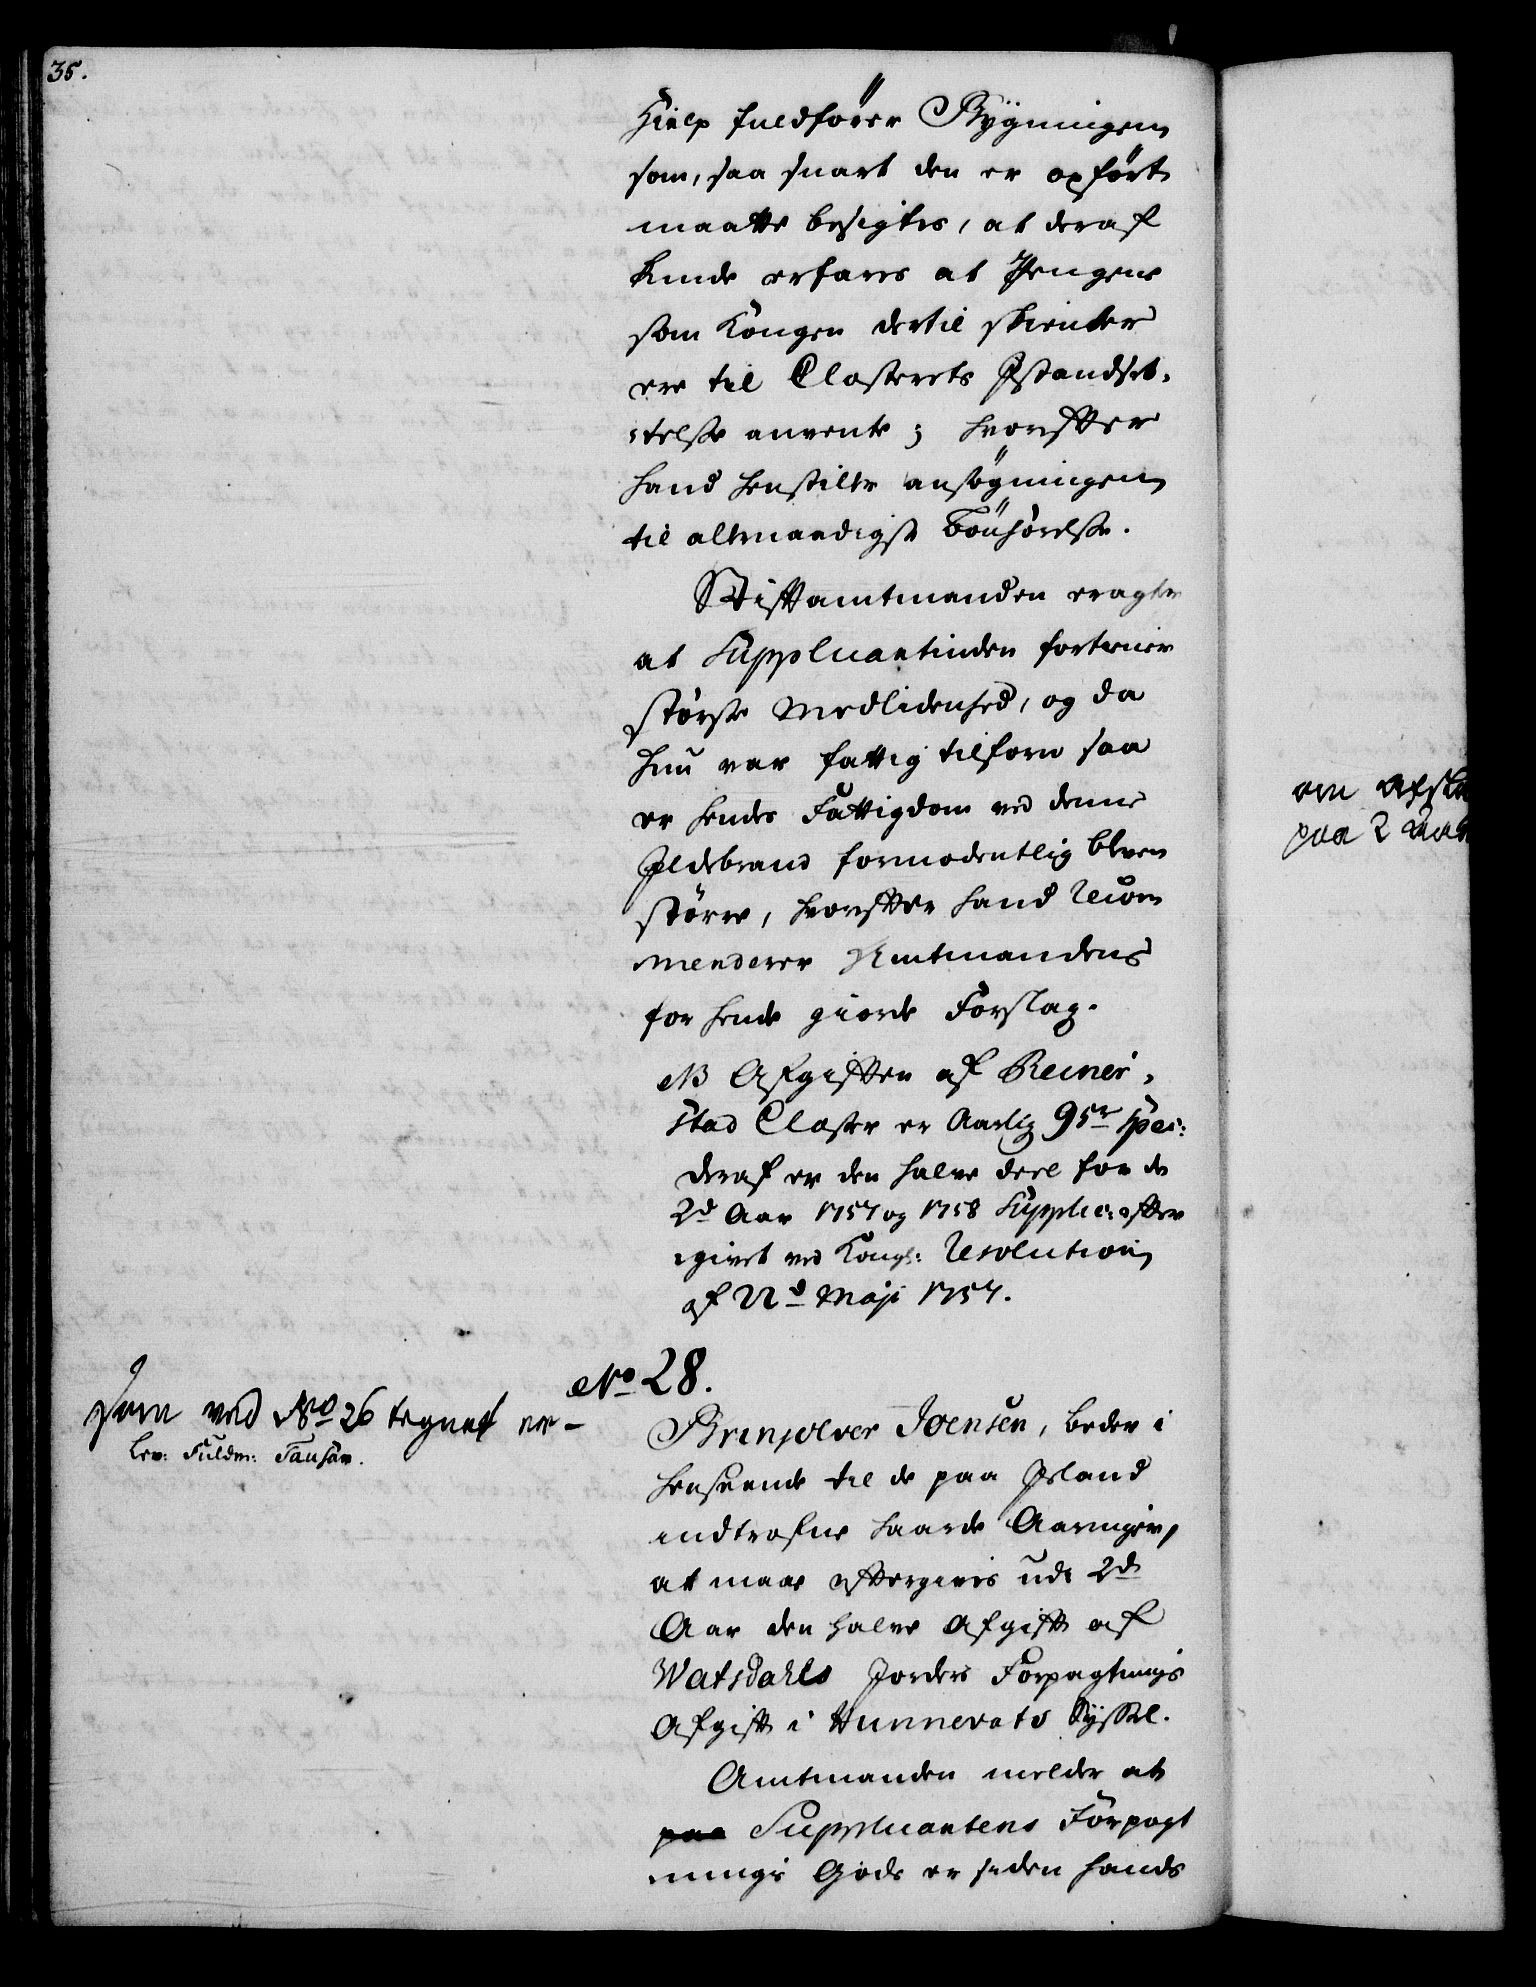 35.
Hielp fuldfører Bygningen
som, saa snart den er opført
maatte besigtes, at deraf
kunde erfares at Pengene
som Kongen dertil skienker
ere til Closterets Istandset-
telse anvente; hvorefter
hand henstiller ansøgningen
til allernaadigst Bønhørelse.
Stiftamtmanden eragter
at Supplicantinden fortiener
største Medlidenhed, og da
hun var fattig tilforn saa
er hendes Fattigdom ved denne
Ildebrand formodentlig bleven
større, hvorefter hand recom
menderer Amtmandens
for hende giorde Forslag.
NB Afgiften af Reinis-
stad Closter er Aarlig 95 r spec:
deraf er den halve deel for de
2de Aar 1757 og 1758 Supplic: efter
givet ved Kongl: Resolution
af 22d Maji 1757.
No 28.
Som ved No 26 tegnet er -
Lev: Fuldm: Tausan.
Brinjolver Joensen, beder i
henseende til de paa Island
indtrofne haarde Aaringer,
at maae eftergives udi 2de
Aar den halve Afgift af
Watsdahls Jorders Forpagtnings
Afgift i Hunnevats Syssel.
Amtmanden melder at
paa Supplicantens Forpagt
nings Gods er siden hands
om
paa 2